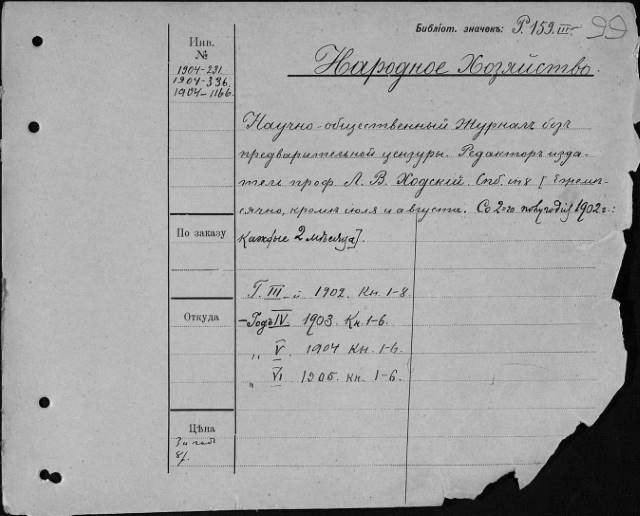 Библіот. значекъ: Р. 159. III 99
Инв.
№
1904-221.
1904-336.
1904-1166.
Народное Хозяйство.
Научно-общественный журналъ безъ
предварительной цензуры. Редакторъ изда-
тель проф. Л. В. Ходскій. Спб. in 8 [Ежемѣ-
сячно, кромѣ іюля и августа. Со 2-го полугодія 1902 г.:
каждые 2 мѣсяца].
По заказу
Г. III-й 1902. Кн. 1-8.
Откуда
- Годъ IV. 1903. Кн. 1-6.
„ V. 1904 Кн. 1-6.
„ VI 1905. Кн. 1-6.
Цѣна
За годъ
8 р.